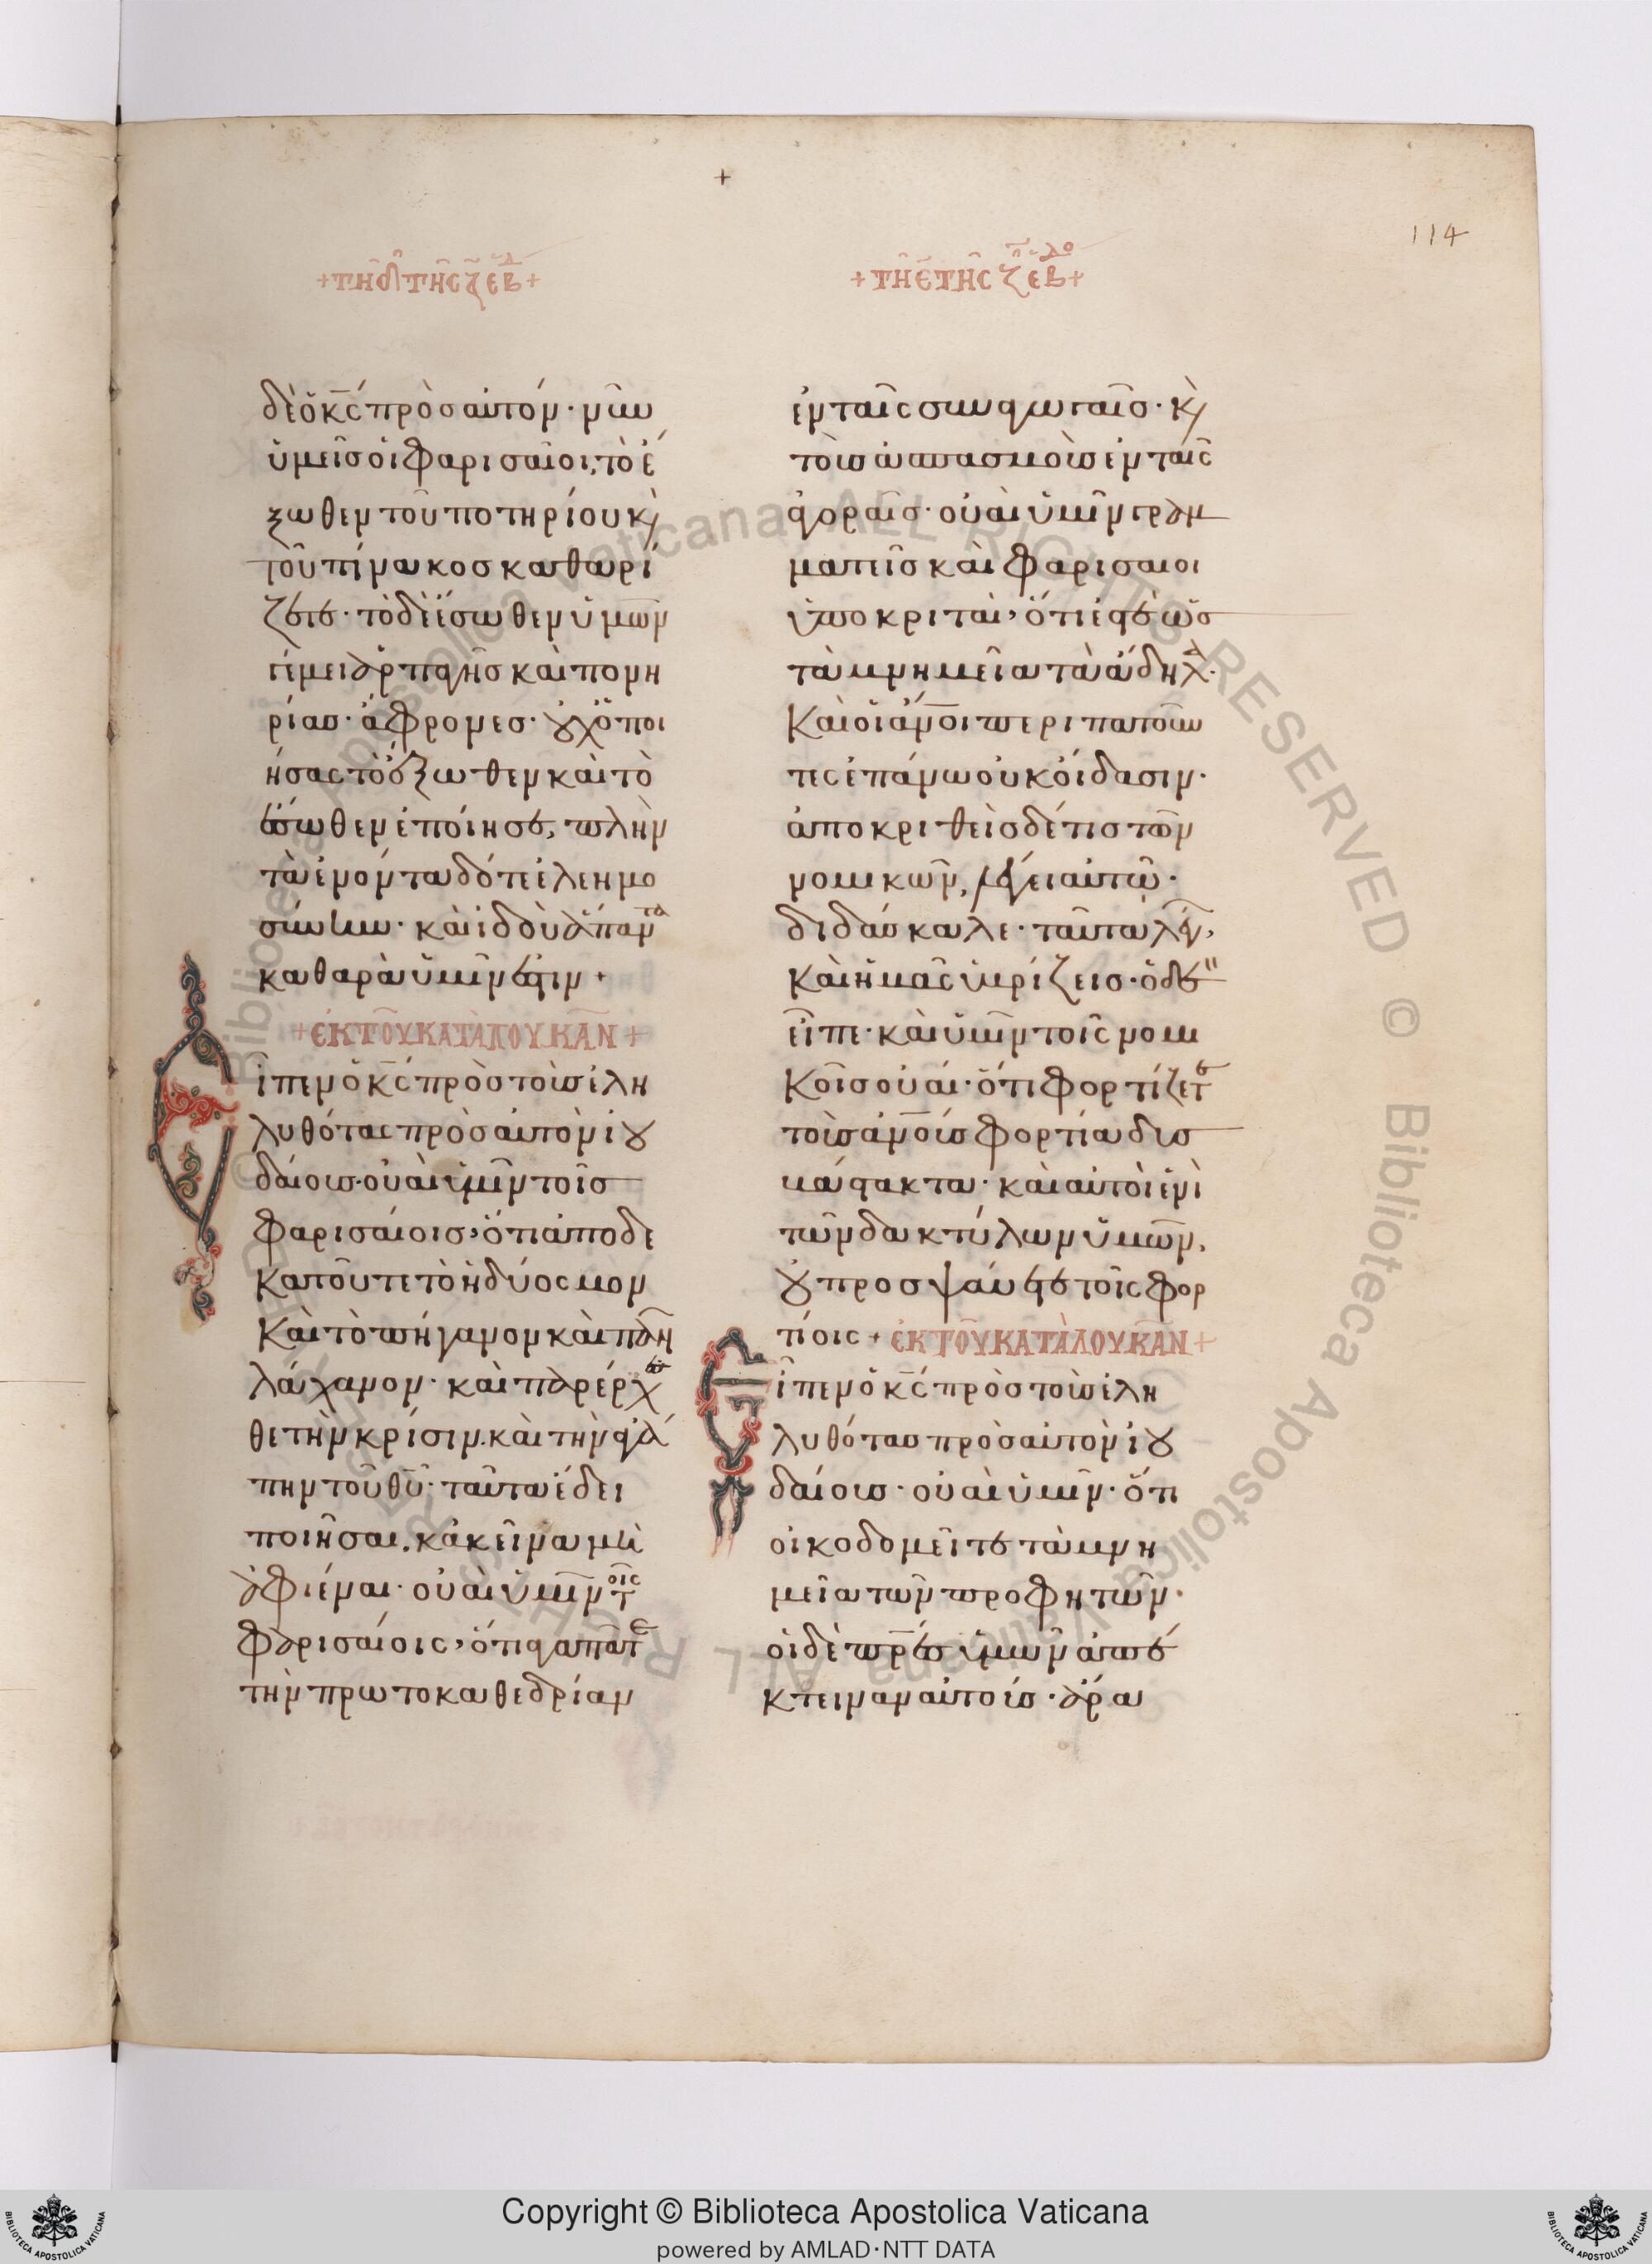 114
+
+ τῆ δ̄ τῆς ζ̄ ἑβδ +
δὲ ὁ κ̅ς̅ πρὸς αὐτόν· νῦν
ὑμεῖς οἱ φαρισαῖοι, τὸ ἔ
ξωθεν τοῦ ποτηρίου κ(αὶ)
τοῦ πίνακος καθαρί
ζετε· τὸ δὲ ἔσωθεν ὑμῶν
γέμει ἁρπαγῆς καὶ πονη
ρίας· ἄφρονες· οὐχ ὁ ποι
ήσας τὸ ἔξωθεν καὶ τὸ
ἔσωθεν ἐποίησε, πλὴν
τὰ ἐνόντα δότε ἐλεημο
σύνην· καὶ ἰδοὺ ἅπαντα
καθαρὰ ὑμῖν ἐστιν +
+ ἐκ τοῦ κατὰ λουκᾶν +
Εἶπεν ὁ κ̅ς̅ πρὸς τοὺς ἐλη
λυθότας πρὸς αὐτὸν ἰου
δαίους· οὐαὶ ὑμῖν τοῖς
φαρισαίοις, ὅτι ἀποδε
κατοῦτε τὸ ἡδύοσμον
καὶ τὸ πήγανον καὶ πᾶν
λάχανον· καὶ παρέρχεσ
θε τὴν κρίσιν. καὶ τὴν ἀγά
πην τοῦ θ̅υ̅· ταῦτα ἔδει
ποιῆσαι, κἀκεῖνα μὴ
ἀφιέναι· οὐαὶ ὑμῖν τοῖς
φαρισαίοις, ὅτι ἀγαπᾶτε
τὴν πρωτοκαθεδρίαν
+ τῆ ε̄ τῆς ζ̄ ἑβδο +
ἐν ταῖς συναγωγαῖς· κ(αὶ)
τοὺς ἀσπασμοὺς ἐν ταῖς
ἀγοραῖς· οὐαὶ ὑμῖν γραμ
ματεῖς καὶ φαρισαῖοι
ὑποκριταὶ, ὅτι ἐστὲ ὡς
τὰ μνημεῖα τὰ ἄδηλα·
καὶ οἱ ἄν̅οι περιπατοῦν
τες ἐπάνω οὐκ οἴδασιν·
ἀποκριθεὶς δέ τις τῶν
νομικῶν, λέγει αὐτῷ·
διδάσκαλε· ταῦτα λέγων,
καὶ ἡμᾶς ὑβρίζεις· ὁ δὲ
εἶπε· καὶ ὑμῖν τοῖς νομι
κοῖς οὐαί· ὅτι φορτίζετε
τοὺς ἀν̅ους φορτία δυσ
βάστακτα· καὶ αὐτοὶ ἑνὶ
τῶν δακτύλων ὑμῶν,
οὐ προσψαύετε τοῖς φορ
τίοις + ἐκ τοῦ κατὰ λουκᾶν +
Εἶπεν ὁ κ̅ς̅ πρὸς τοὺς ἐλη
λυθότας πρὸς αὐτὸν ἰου
δαίους· οὐαὶ ὑμῖν· ὅτι
οἰκοδομεῖτε τὰ μνη
μεῖα τῶν προφητῶν·
οἱ δὲ π̅ρ̅ες ὑμῶν ἀπέ
κτειναν αὐτούς· ἄρα
Copyright © Biblioteca Apostolica Vaticana
powered by AMLAD·NTT DATA